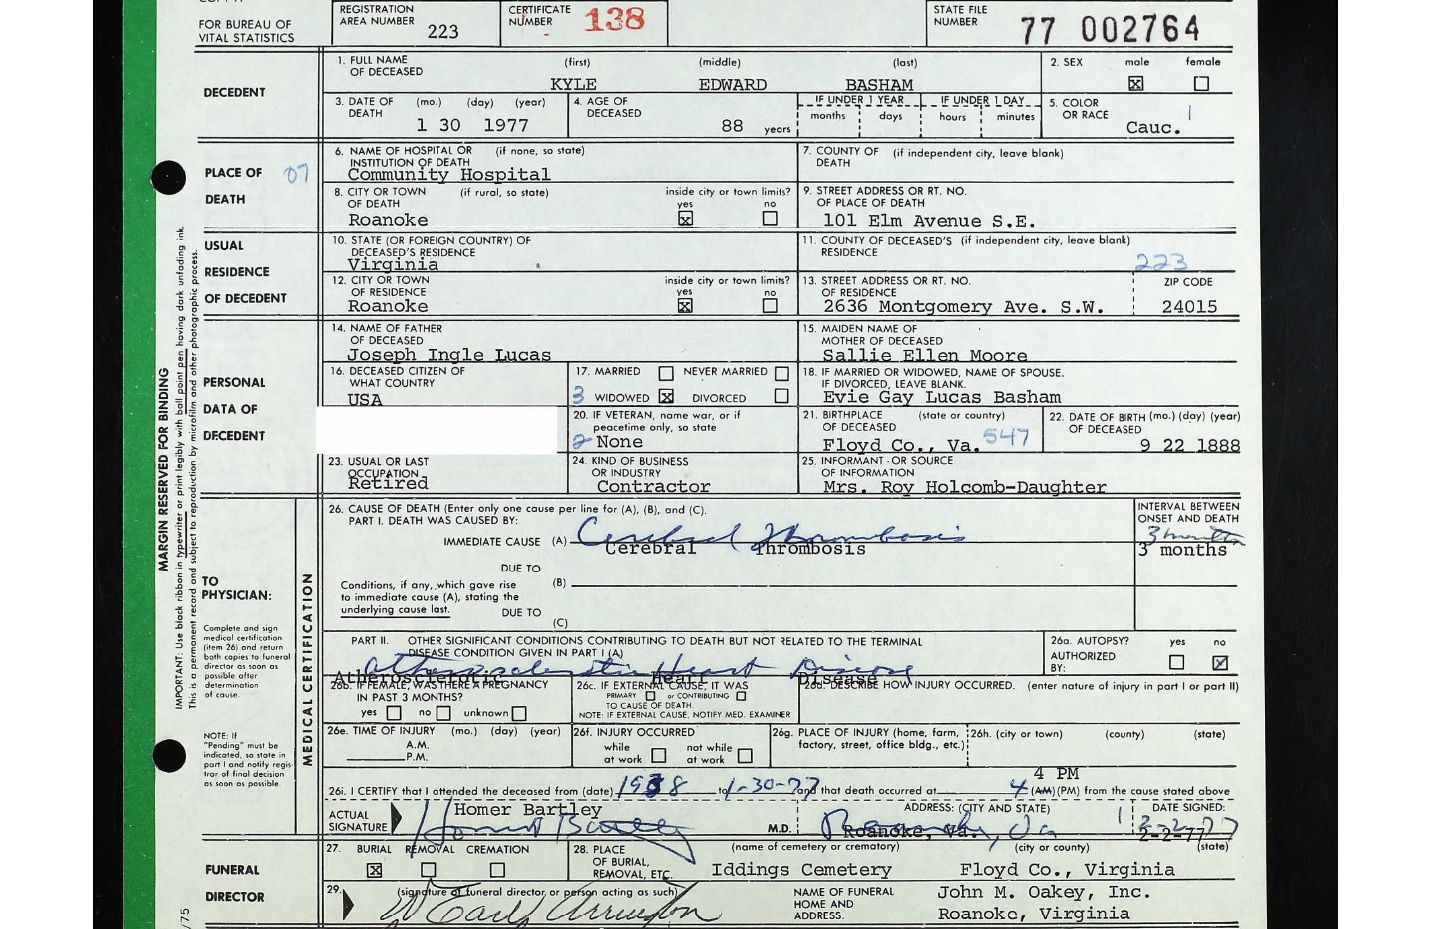 FOR BUREAU OF
VITAL STATISTICS
REGISTRATION
AREA NUMBER 223
CERTIFICATE
NUMBER 138
STATE FILE
NUMBER 77 002764
DECEDENT
1. FULL NAME (first) (middle) (last)
OF DECEASED
KYLE EDWARD BASHAM
2. SEX male female
3. DATE OF (mo.) (day) (year)
DEATH
1 30 1977
4. AGE OF
DECEASED
88 years
IF UNDER 1 YEAR IF UNDER 1 DAY
months days hours minutes
5. COLOR
OR RACE 1
Cauc.
PLACE OF
DEATH
07
6. NAME OF HOSPITAL OR (if none, so state)
INSTITUTION OF DEATH
Community Hospital
7. COUNTY OF (if independent city, leave blank)
DEATH
8. CITY OR TOWN (if rural, so state) inside city or town limits?
OF DEATH yes no
Roanoke
9. STREET ADDRESS OR RT. NO.
OF PLACE OF DEATH
101 Elm Avenue S.E.
USUAL
RESIDENCE
OF DECEDENT
10. STATE (OR FOREIGN COUNTRY) OF
DECEASED'S RESIDENCE
Virginia
11. COUNTY OF DECEASED'S (if independent city, leave blank)
RESIDENCE
223
12. CITY OR TOWN inside city or town limits?
OF RESIDENCE yes no
Roanoke
13. STREET ADDRESS OR RT. NO. ZIP CODE
OF RESIDENCE
2636 Montgomery Ave. S.W. 24015
PERSONAL
DATA OF
DECEDENT
14. NAME OF FATHER
OF DECEASED
Joseph Ingle Lucas
15. MAIDEN NAME OF
MOTHER OF DECEASED
Sallie Ellen Moore
16. DECEASED CITIZEN OF
WHAT COUNTRY
USA
17. MARRIED NEVER MARRIED
3 WIDOWED DIVORCED
18. IF MARRIED OR WIDOWED, NAME OF SPOUSE.
IF DIVORCED, LEAVE BLANK.
Evie Gay Lucas Basham
20. IF VETERAN, name war, or if
peacetime only, so state
2 None
21. BIRTHPLACE (state or country)
OF DECEASED
Floyd Co., Va. 547
22. DATE OF BIRTH (mo.) (day) (year)
OF DECEASED
9 22 1888
23. USUAL OR LAST
OCCUPATION
Retired
24. KIND OF BUSINESS
OR INDUSTRY
Contractor
25. INFORMANT - OR SOURCE
OF INFORMATION
Mrs. Roy Holcomb-Daughter
MARGIN RESERVED FOR BINDING
IMPORTANT: Use black ribbon in typewriter or print legibly with ball point pen having dark unfading ink.
This is a permanent record and subject to reproduction by microfilm and other photographic process.
TO
PHYSICIAN:
Complete and sign
medical certification
(item 26) and return
both copies to funeral
director as soon as
possible after
determination
of cause.
NOTE: If
"Pending" must be
indicated, so state in
part I and notify regis-
trar of final decision
as soon as possible.
MEDICAL CERTIFICATION
26. CAUSE OF DEATH (Enter only one cause per line for (A), (B), and (C).
PART I. DEATH WAS CAUSED BY:
INTERVAL BETWEEN
ONSET AND DEATH
IMMEDIATE CAUSE (A) Cerebral Thrombosis 3 months
Cerebral Thrombosis 3 months
DUE TO
Conditions, if any, which gave rise (B)
to immediate cause (A), stating the
underlying cause last. DUE TO
(C)
PART II. OTHER SIGNIFICANT CONDITIONS CONTRIBUTING TO DEATH BUT NOT RELATED TO THE TERMINAL
DISEASE CONDITION GIVEN IN PART I (A)
Atherosclerotic Heart Disease
Atherosclerotic Heart Disease
26a. AUTOPSY? yes no
AUTHORIZED
BY:
26b. IF FEMALE, WAS THERE A PREGNANCY
IN PAST 3 MONTHS?
yes no unknown
26c. IF EXTERNAL CAUSE, IT WAS
PRIMARY or CONTRIBUTING
TO CAUSE OF DEATH.
NOTE: IF EXTERNAL CAUSE, NOTIFY MED. EXAMINER
26d. DESCRIBE HOW INJURY OCCURRED. (enter nature of injury in part I or part II)
26e. TIME OF INJURY (mo.) (day) (year)
A.M.
P.M.
26f. INJURY OCCURRED
while not while
at work at work
26g. PLACE OF INJURY (home, farm,
factory, street, office bldg., etc.)
26h. (city or town) (county) (state)
4 PM
26i. I CERTIFY that I attended the deceased from (date) to 1-30-77 and that death occurred at 4 (AM) (PM) from the cause stated above
ACTUAL
SIGNATURE
Homer Bartley
Homer Bartley M.D.
ADDRESS: (CITY AND STATE)
Roanoke, Va
Roanoke, Va.
DATE SIGNED:
2-2-77
2-2-77
FUNERAL
DIRECTOR
27. BURIAL REMOVAL CREMATION
28. PLACE
OF BURIAL,
REMOVAL, ETC.
(name of cemetery or crematory) (city or county) (state)
Iddings Cemetery Floyd Co., Virginia
29. (signature of funeral director, or person acting as such)
NAME OF FUNERAL
HOME AND
ADDRESS.
John M. Oakey, Inc.
Roanoke, Virginia
/75